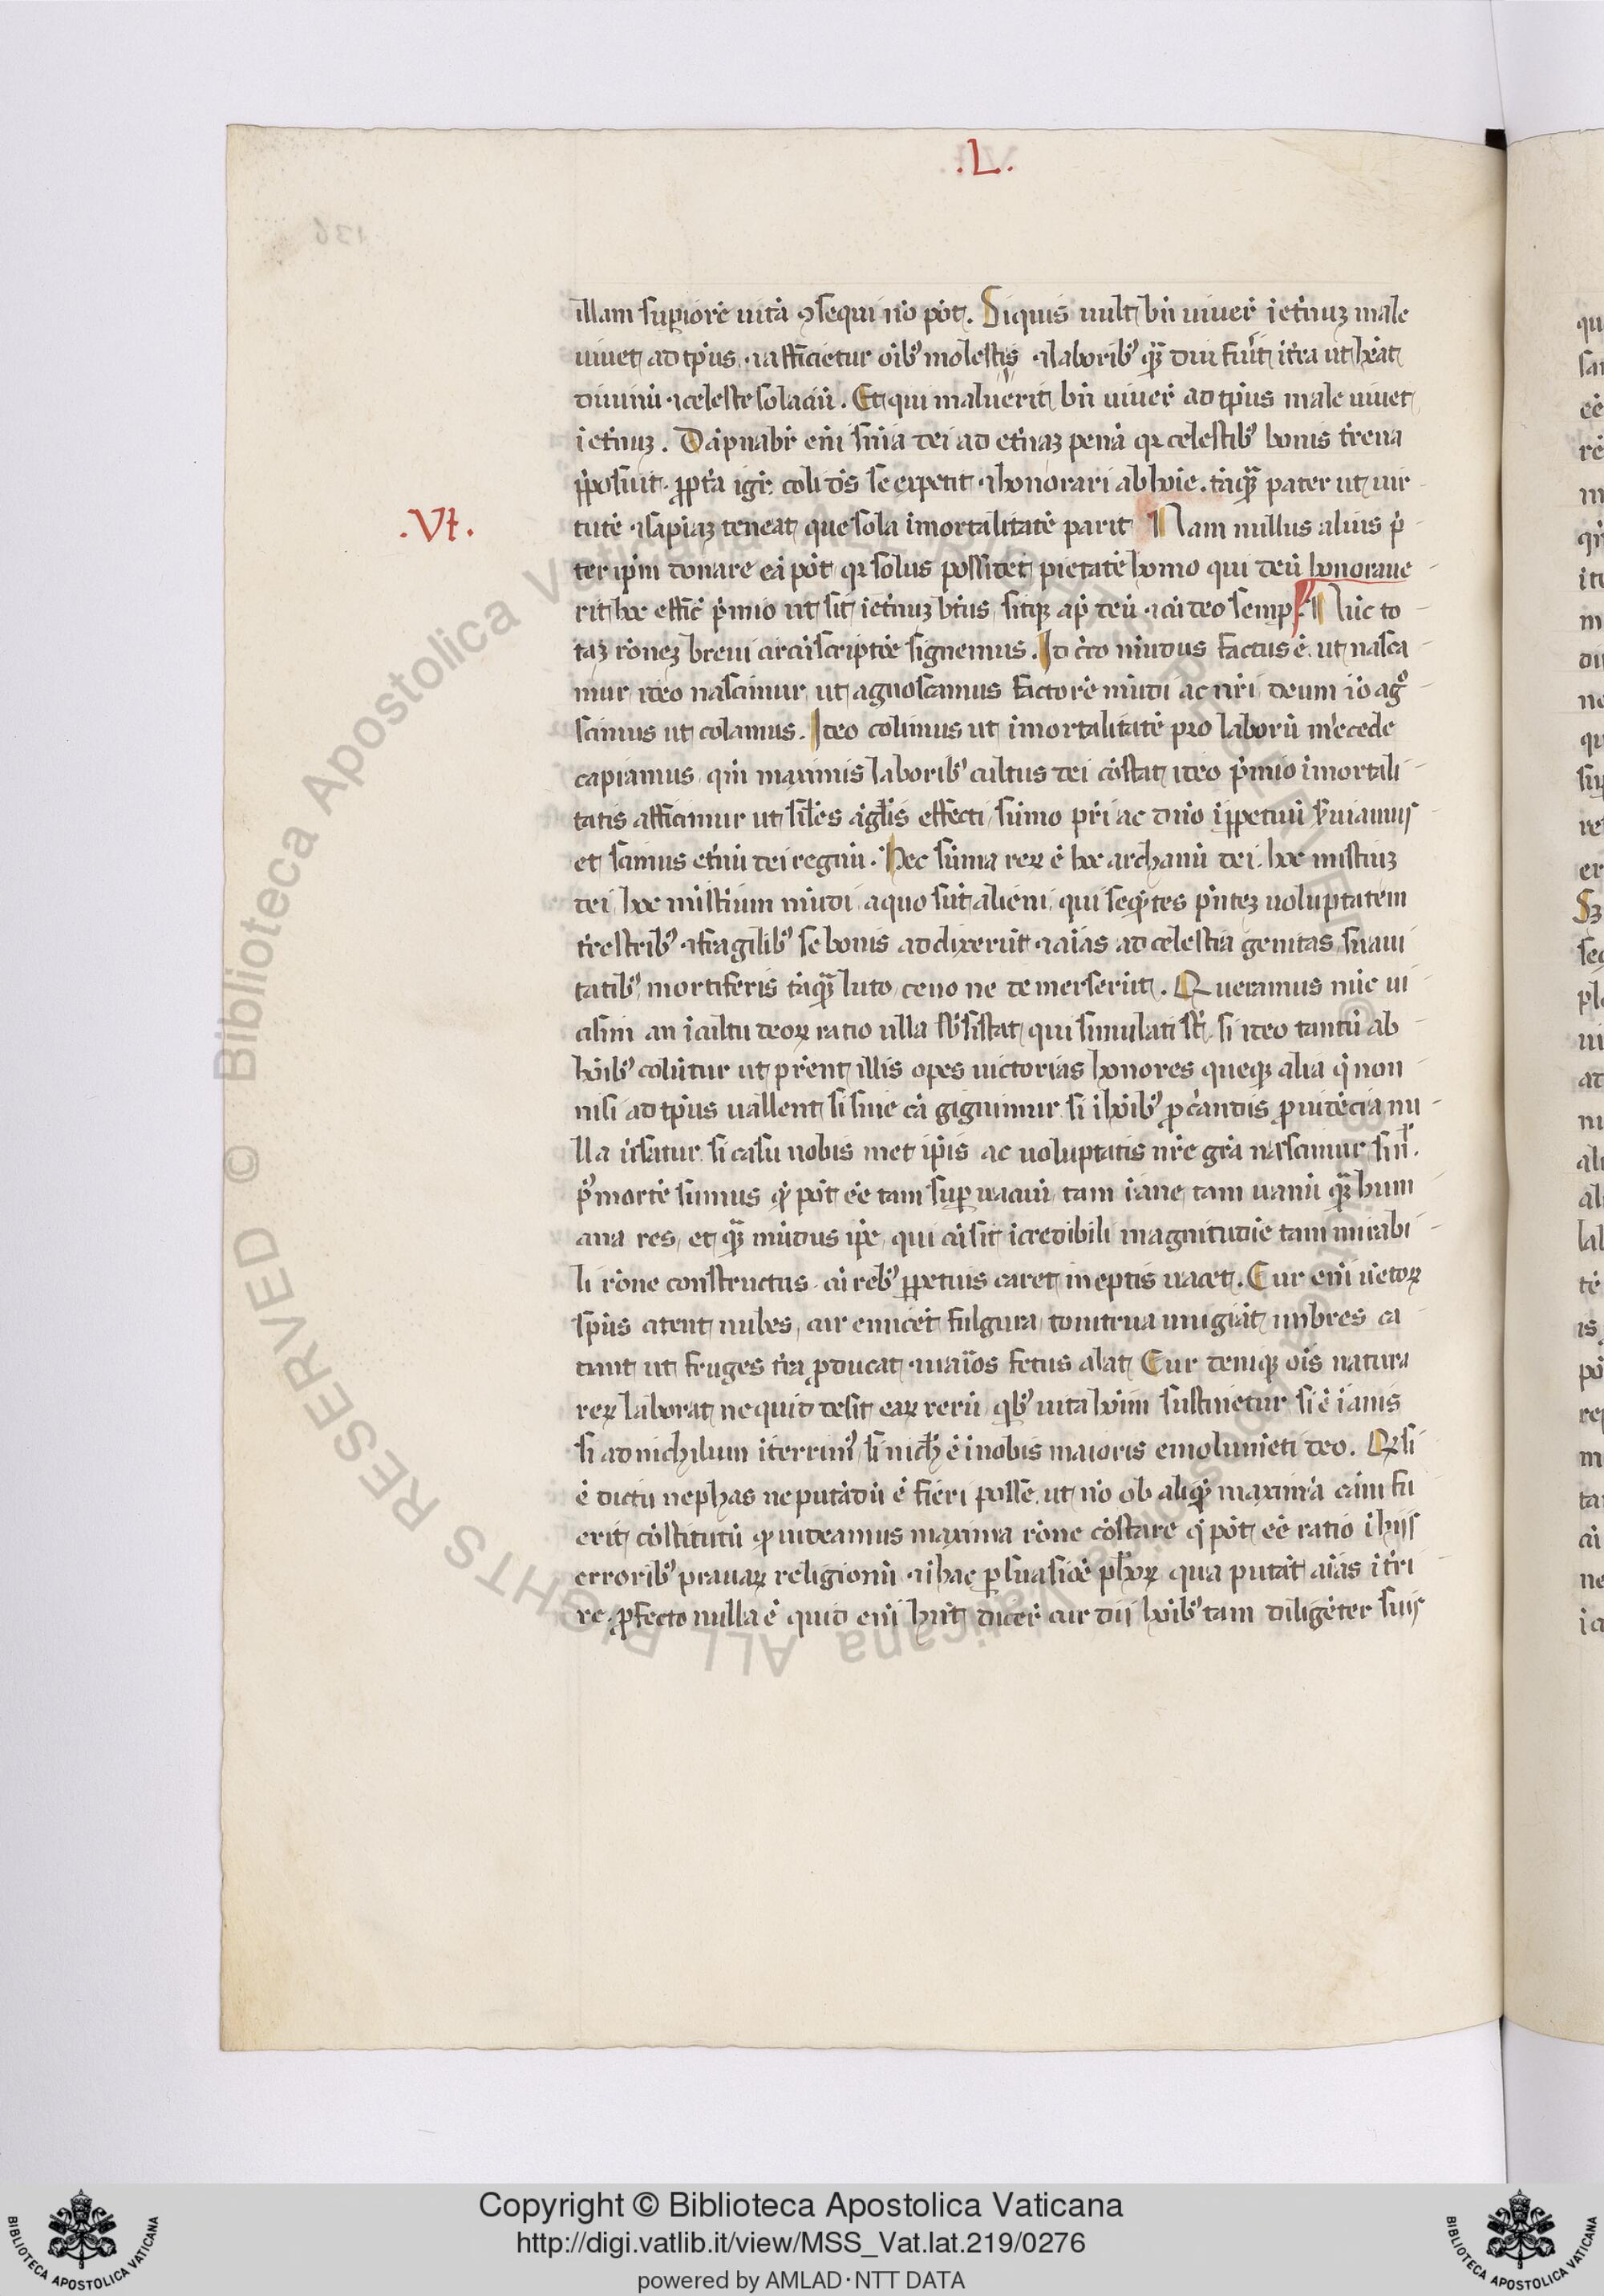 .L.
illam supiorē uitā ꝯsequi nō pōt. Siquis uult bn̄ uiuer̄ i et̄nuꝫ male
uiuet ad tp̄us ⁊ afficietur oīb⁹ molestiis ⁊ laborib⁹ qᷓꝫ diu fuīt it̄ra ut h̄eat
diuinū ⁊ celeste solaciū. Et qui maluerit bn̄ uiuer̄ ad tp̄us male uiuet
i et̄nuꝫ. Dāpnabr̄ eni sn̄ia dei ad et̄naꝫ penā qꝛ celestib⁹ bonis t̄rena
p̄posuit. ꝓpt̄a igr̄ coli ds̄ se expetit ⁊ honorari ab hōie. tāqᷓꝫ pater ut uir
.VI.
tutē ⁊ sapiaꝫ teneat que sola īmortalitatē parit Nam nullus alius p̄
ter ip̄m donare eā pōt qꝛ solus possidet pietatē homo qui deū honoraue
rit hoc effic̄ p̄mio ut sit i et̄nuꝫ bt̄us sitqꝫ ap̄ deū ⁊ cū deo semp. Nūc to
taꝫ rōneꝫ breui circūscriptōe signemus. Id c̄rco mūdus factus ē. ut nasca
mur ideo nascimur ut agnoscamus factorē mūdi ac nr̄i deum iō agᷓ
scimus ut colamus. Ideo colimus ut īmortalitatē pro laborū m̄cede
capiamus qm̄ maximis laborib⁹ cultus dei cōstat ideo p̄mio īmortali
tatis afficimur ut sil̄es āgl̄is effecti sūmo pr̄i ac dn̄o īppetuū s̄uiamus
et scimus et̄nū dei regnū. Hec sūma reꝝ ē hoc archanū dei. hoc mistiuꝫ
dei hoc mist̄ium mūdi a quo sūt alieni qui seqn̄tes p̄nteꝫ uoluptatem
t̄restrib⁹ ⁊ fragilib⁹ se bonis addixerūt ⁊ aīas ad celestia genitas suaui
tatib⁹ mortiferis tāqᷓꝫ luto ceno ne demerserūt. Queramus nūc ui
cisim an ī cultu deoꝝ ratio ulla sb̄sistat qui simulati st̄. si ideo tantū ab
hōib⁹ colūtur ut pr̄ent illis opes uictorias honores queqꝫ alia q̄ non
nisi ad tp̄us uallent si sine cā gignimur si ī hōib⁹ ꝓc̄andis ꝓuidēcia nu
lla ūsatur si casu nobis met ip̄is ac uoluptatis nr̄e grā nascimur si nl̄.
p⁹ mortē sumus qͥ pōt ēē tam supuacuū tam īane tam uanū qᷓꝫ hum
ana res et qᷓꝫ mūdus ip̄e qui cū sit īcredibili magnitudīe tam mirabi
li rōne constructus cū reb⁹ ꝑpetuis caret ineptis uacet. Cur eni uētoꝝ
sp̄us citent nubes cur emicēt fulgura tonitrua mugiāt imbres ca
dant ut fruges t̄ra ꝓducat ⁊ uaīos fetus alat Cur deniqꝫ oīs natura
reꝝ laborat ne quid desit eaꝝ rerū qb⁹ uita hōim sustinetur si ē īanis
si ad nichilum īterrim⁹ si nich̄ ē ī nobis maioris emolumēti deo. Qꝛ si
ē dictu nephas ne putādū ē fieri posse ut nō ob aliqᷓ maximā cām fu
erit cōstitutū qͥ uideamus maxima rōne cōstare qͥ pōt ēē ratio ī hijs
errorib⁹ prauaꝝ religionū ⁊ ī hac ꝑsuasiōe ph̄oꝝ qua putāt aīas īt̄ri
re. ꝓfecto nulla ē quid eni hn̄t dicer̄ cur dii hōib⁹ tam diligēter suis
Copyright © Biblioteca Apostolica Vaticana
http://digi.vatlib.it/view/MSS_Vat.lat.219/0276
powered by AMLAD·NTT DATA